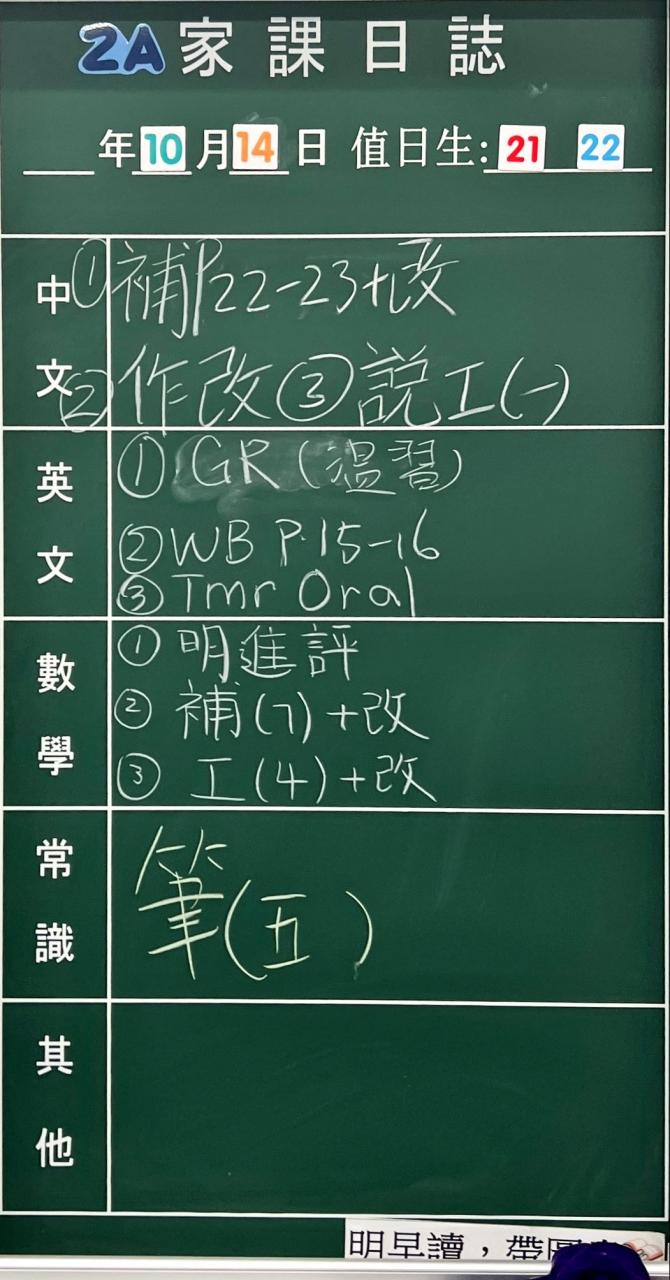 2A 家課日誌
年10月14日 值日生: 21 22
中文
①補P22-23+改
②作改③說工(一)
英文
①GR(溫習)
②WB P.15-16
③Tmr Oral
數學
①明進評
②補(7)+改
③工(4)+改
常識
筆(五)
其他
明早讀，帶圖